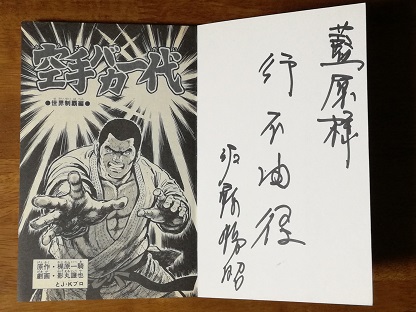 空手バカ一代
●世界制覇編●
原作・梶原一騎
劇画・影丸譲也
とJ・Kプロ
藍原様
行不由径